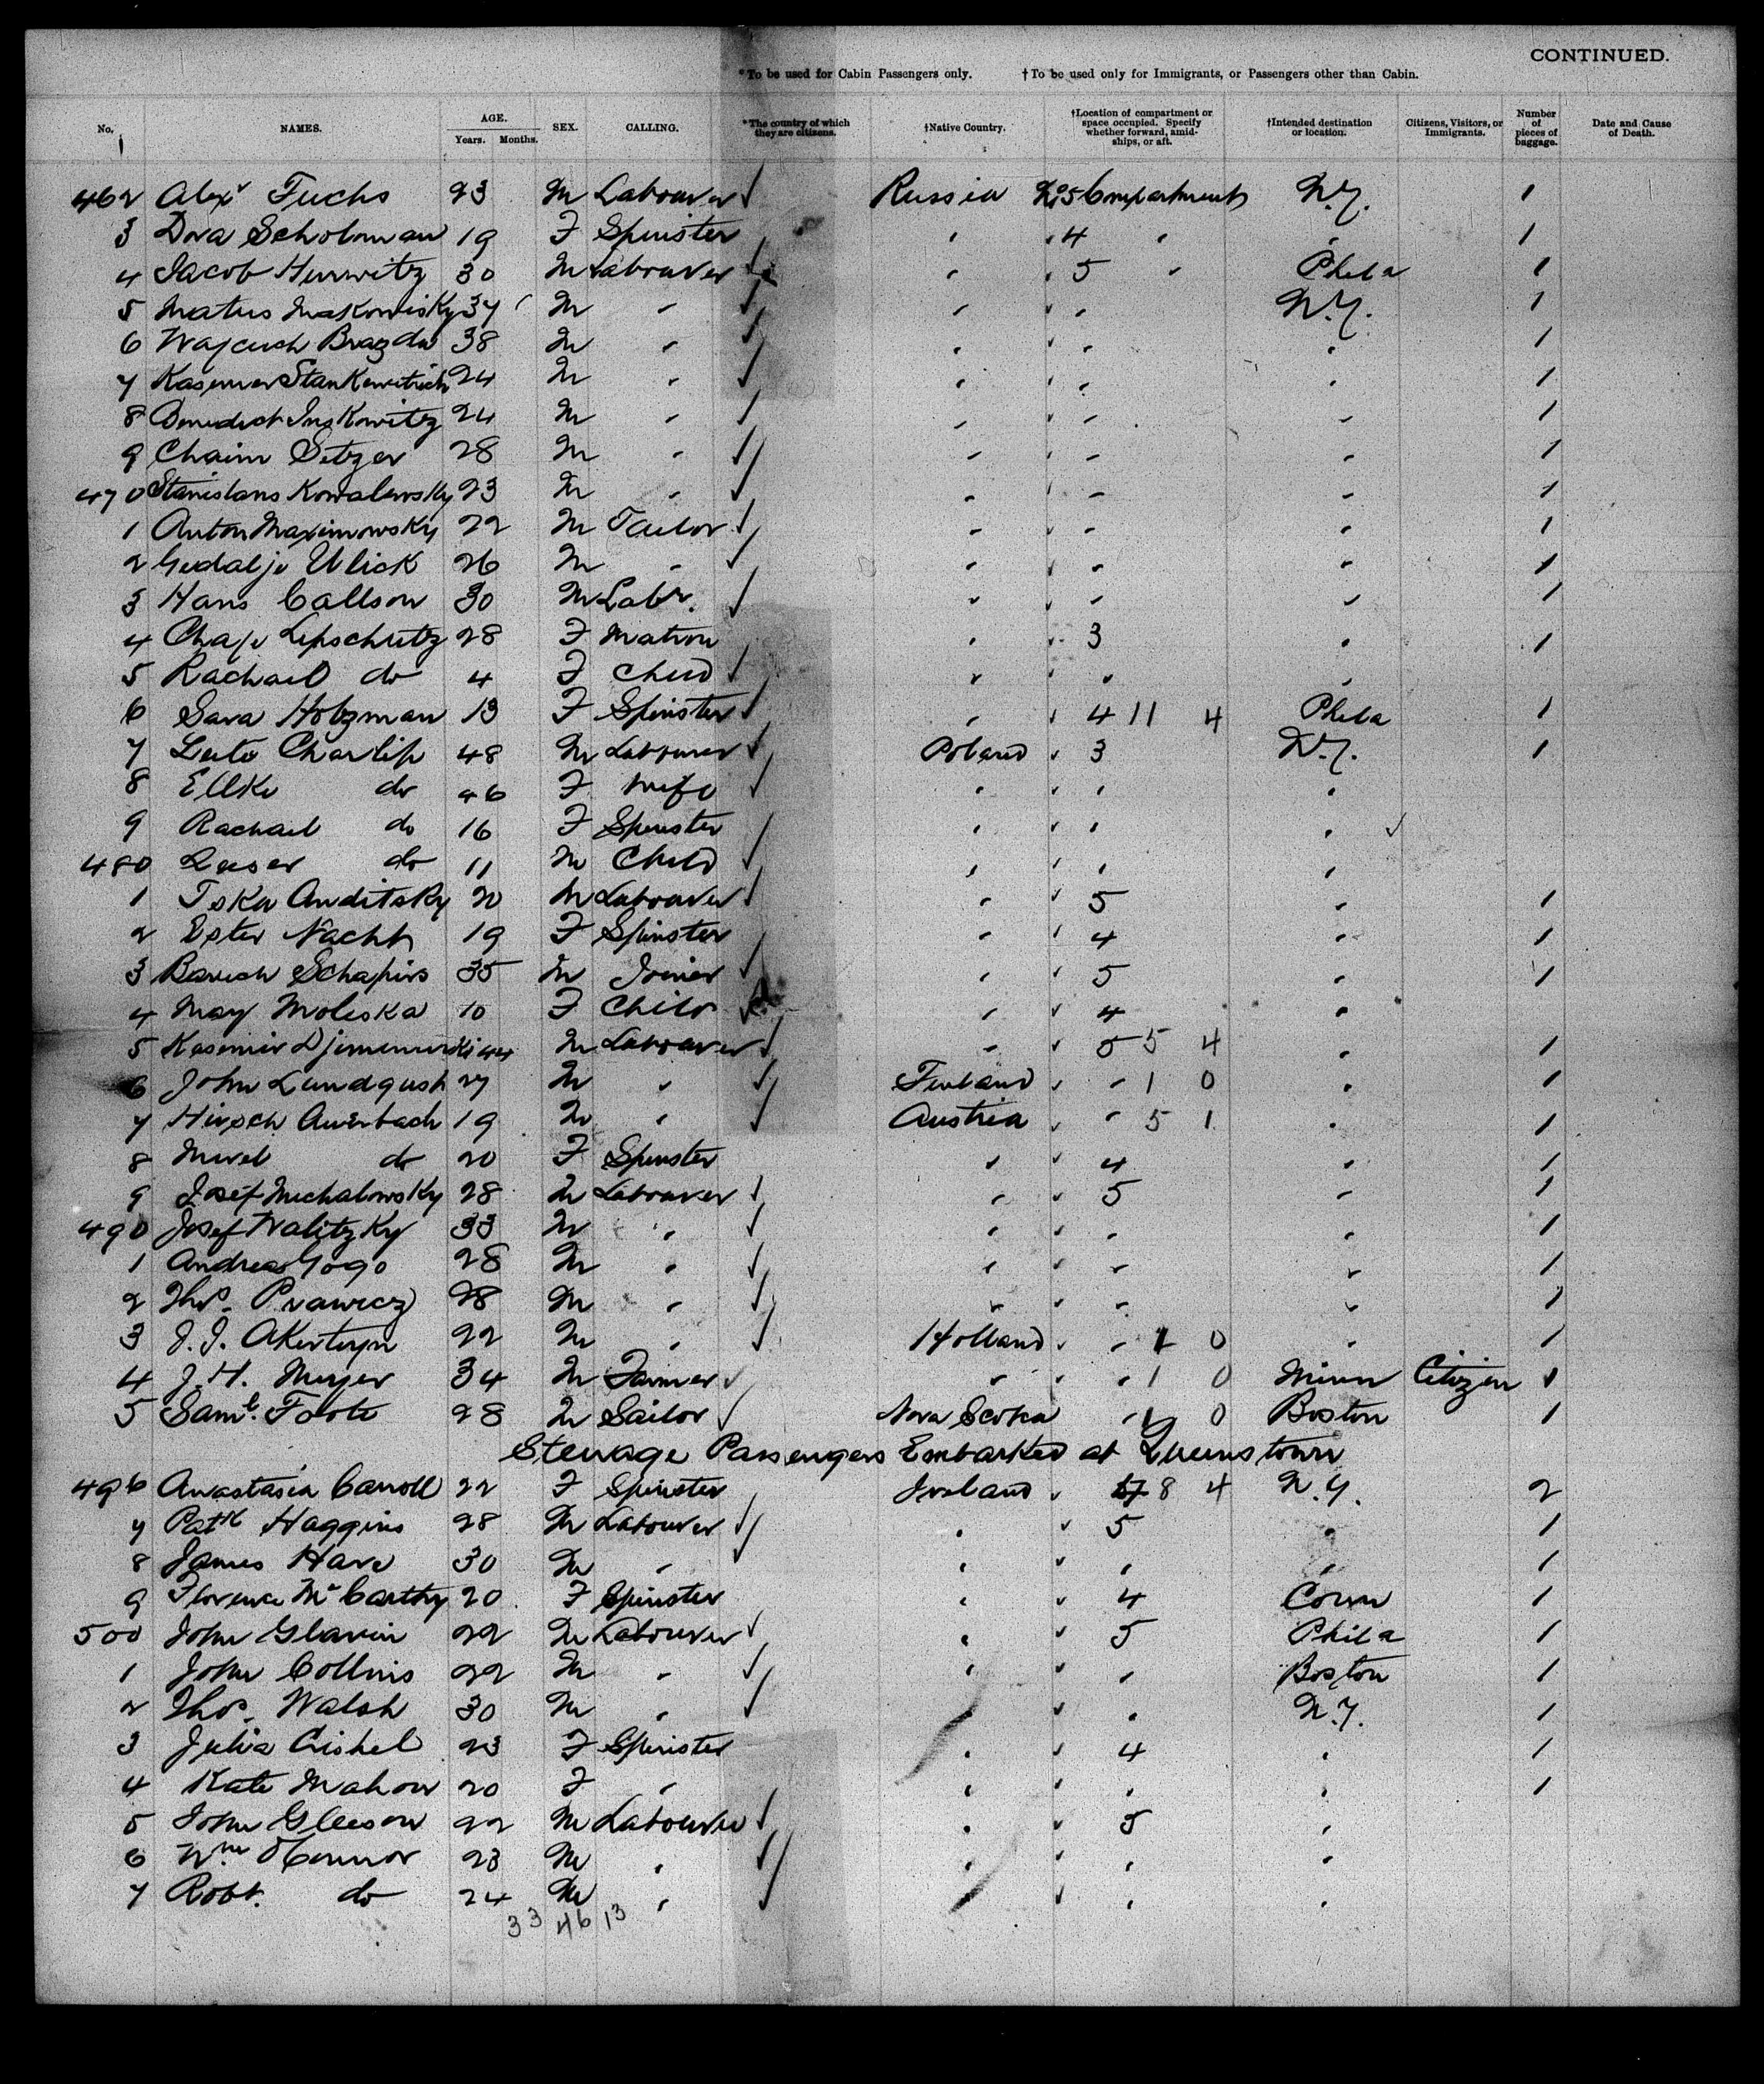 CONTINUED.
*To be used for Cabin Passengers only. †To be used only for Immigrants, or Passengers other than Cabin.
No. NAMES. AGE. Years. Months. SEX. CALLING. *The country of which they are citizens. †Native Country. †Location of compartment or space occupied. Specify whether forward, amidships, or aft. †Intended destination or location. Citizens, Visitors, or Immigrants. Number of pieces of baggage. Date and Cause of Death.
462 Alexr Fuchs 23 M Labourer Russia No 5 Compartment N.Y. 1
3 Dora Scholoman 19 F Spinster " " 4 " " 1
4 Jacob Hurwitz 30 M Labourer " " 5 " Phila 1
5 Matus Makowisky 37 M " " " " N.Y. 1
6 Wajciech Brazda 38 M " " " " " 1
7 Kasimer Stankewitsch 24 M " " " " " 1
8 Benedict Inskowitz 24 M " " " " " 1
9 Chaim Setzer 28 M " " " " " 1
470 Stanislaus Kowalewsky 23 M " " " " " 1
1 Anton Maximowsky 22 M Tailor " " " " 1
2 Gedalje Ulick 26 M " " " " " 1
3 Hans Callson 30 M Labr. " " " " 1
4 Chaje Lipschutz 28 F Matron " " 3 " 1
5 Rachael do 4 F Child " " " "
6 Sara Holzman 13 F Spinster " " 4 11 4 Phila 1
7 Charlip 48 M Labourer Poland " 3 N.Y. 1
8 Ellke do 46 F Wife " " " "
9 Rachael do 16 F Spinster " " " "
480 Leeser do 11 M Child " " " "
1 Toka Anditsky 20 M Labourer " " 5 " 1
2 Ester Nacht 19 F Spinster " " 4 " 1
3 Baruch Schapiro 35 M Joiner " " 5 " 1
4 May Moleska 10 F Child " " 4 "
5 Kasimir 44 M Labourer " " 5 5 4 " 1
6 John Lundqust 27 M " Finland " " 1 0 " 1
7 Hirsch Auerbach 19 M " Austria " " 5 1 " 1
8 Mirel do 20 F Spinster " " 4 " 1
9 Josef Michalowsky 28 M Labourer " " 5 " 1
490 Josef Walitzky 33 M " " " " " 1
1 Andreas Gogo 28 M " " " " " 1
2 Thos. Prawicz 28 M " " " " " 1
3 J. J. Akertuyn 22 M " Holland " " 1 0 " 1
4 J. H. Meyer 34 M Farmer " " " 1 0 Minn Citizen 1
5 Saml. Foote 28 M Sailor Nova Scotia " 1 0 Boston 1
Steerage Passengers Embarked at Queenstown
496 Anastasia Carroll 22 F Spinster Ireland " 8 4 N.Y. 2
7 Patk Haggins 28 M Labourer " " 5 " 1
8 James Hare 30 M " " " " " 1
9 Florence McCarthy 20 F Spinster " " 4 Conn 1
500 John Glavin 22 M Labourer " " 5 Phila 1
1 John Collins 22 M " " " " Boston 1
2 Thos. Walsh 30 M " " " " N.Y. 1
3 Julia Cishel 23 F Spinster " " 4 " 1
4 Kate Mahon 20 F " " " " " 1
5 John Gleeson 22 M Labourer " " 5 "
6 Wm OConnor 23 M " " " " "
7 Robt. do 24 M " " " " "
33 46 13